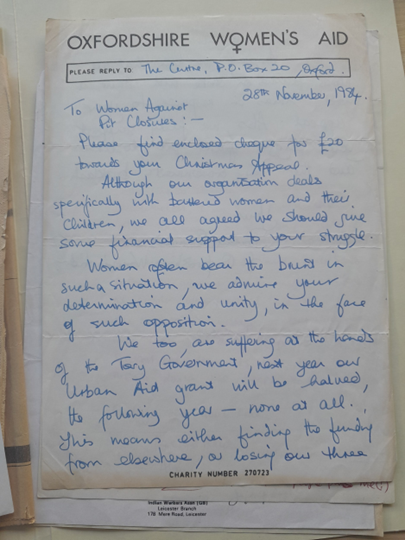 OXFORDSHIRE WOMEN'S AID
PLEASE REPLY TO The Centre, P.O. Box 20, Oxford.
28th November, 1984.
To Women Against
Pit Closures:-
Please find enclosed cheque for £20
towards your Christmas Appeal.
Although our organisation deals
specifically with battered women and their
children, we all agreed we should give
some financial support to your struggle.
Women often bear the brunt in
such a situation, we admire your
determination and unity, in the face
of such opposition.
We too, are suffering at the hands
of the Tory Government, next year our
Urban Aid grant will be halved,
the following year – none at all.
This means either finding the funding
from elsewhere, or losing our three
CHARITY NUMBER 270723
Indian Workers Assn (GB)
Leicester Branch
Road, Leicester